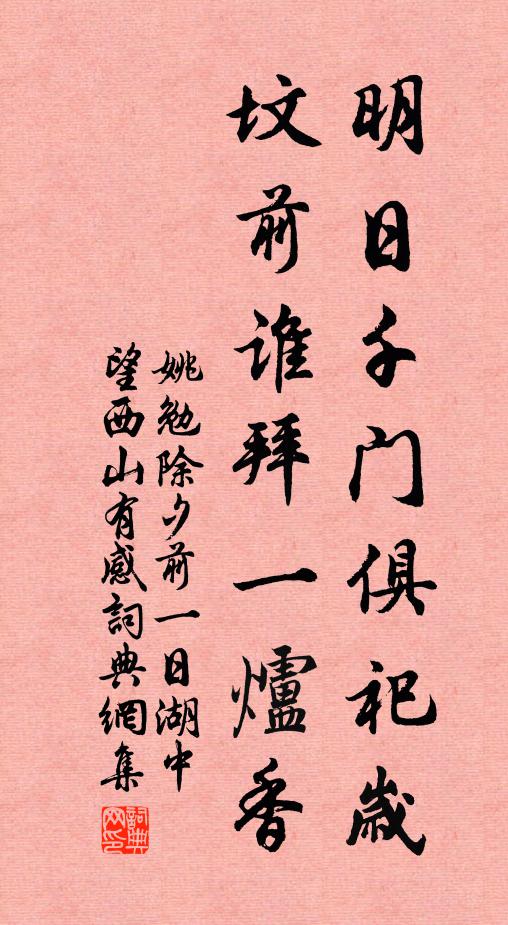 明日千门俱祀歲
坟前谁拜一爐香
姚勉除夕前一日湖中
望西山有感詞典網集
詞典网印